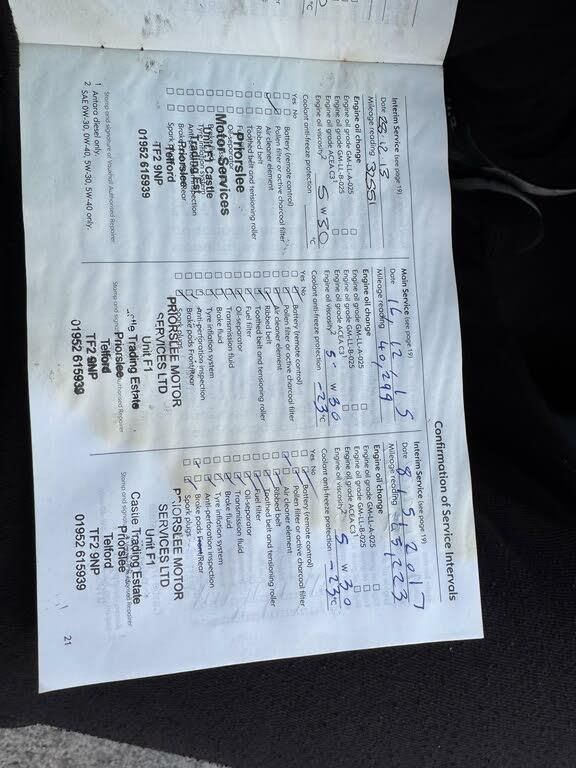 Confirmation of Service Intervals
Interim Service (see page 19)
Date 23.12.13
Mileage reading 32551
Engine oil change
Engine oil grade GM-LL-A-025
Engine oil grade GM-LL-B-025
Engine oil grade ACEA C3¹
Engine oil viscosity² 5 W 30
Coolant anti-freeze protection °C
Yes No
Battery (remote control)
Pollen filter or active charcoal filter
Air cleaner element
Ribbed belt
Toothed belt and tensioning roller
Priorslee
Motor Services
Unit F1 Castle
Trading Est
Priorslee
Telford
TF2 9NP
01952 615939
Stamp and signature of Vauxhall Authorised Repairer
1 Antara diesel only.
2 SAE 0W-30, 0W-40, 5W-30, 5W-40 only.
Main Service (see page 19)
Date 12.15
Mileage reading 40,299
Engine oil change
Engine oil grade GM-LL-A-025
Engine oil grade GM-LL-B-025
Engine oil grade ACEA C3¹
Engine oil viscosity² 5 W 30
Coolant anti-freeze protection -23 °C
Yes No
Battery (remote control)
Pollen filter or active charcoal filter
Air cleaner element
Ribbed belt
Toothed belt and tensioning roller
Fuel filter
Oil-separator
Transmission fluid
Brake fluid
Tyre inflation system
Anti-perforation inspection
Brake pads Front/Rear
PRIORSLEE MOTOR
SERVICES LTD
Unit F1
Trading Estate
Priorslee
Telford
TF2 9NP
01952 615939
Interim Service (see page 19)
Date 8.5.2017
Mileage reading
Engine oil change
Engine oil grade GM-LL-A-025
Engine oil grade GM-LL-B-025
Engine oil grade ACEA C3¹
Engine oil viscosity² 5 W 30
Coolant anti-freeze protection -23 °C
Yes No
Battery (remote control)
Pollen filter or active charcoal filter
Air cleaner element
Ribbed belt
Toothed belt and tensioning roller
Fuel filter
Oil-separator
Transmission fluid
Brake fluid
Tyre inflation system
Anti-perforation inspection
Brake pads Front/Rear
Spark plugs
PRIORSLEE MOTOR
SERVICES LTD
Unit F1
Castle Trading Estate
Priorslee
Telford
TF2 9NP
01952 615939
21